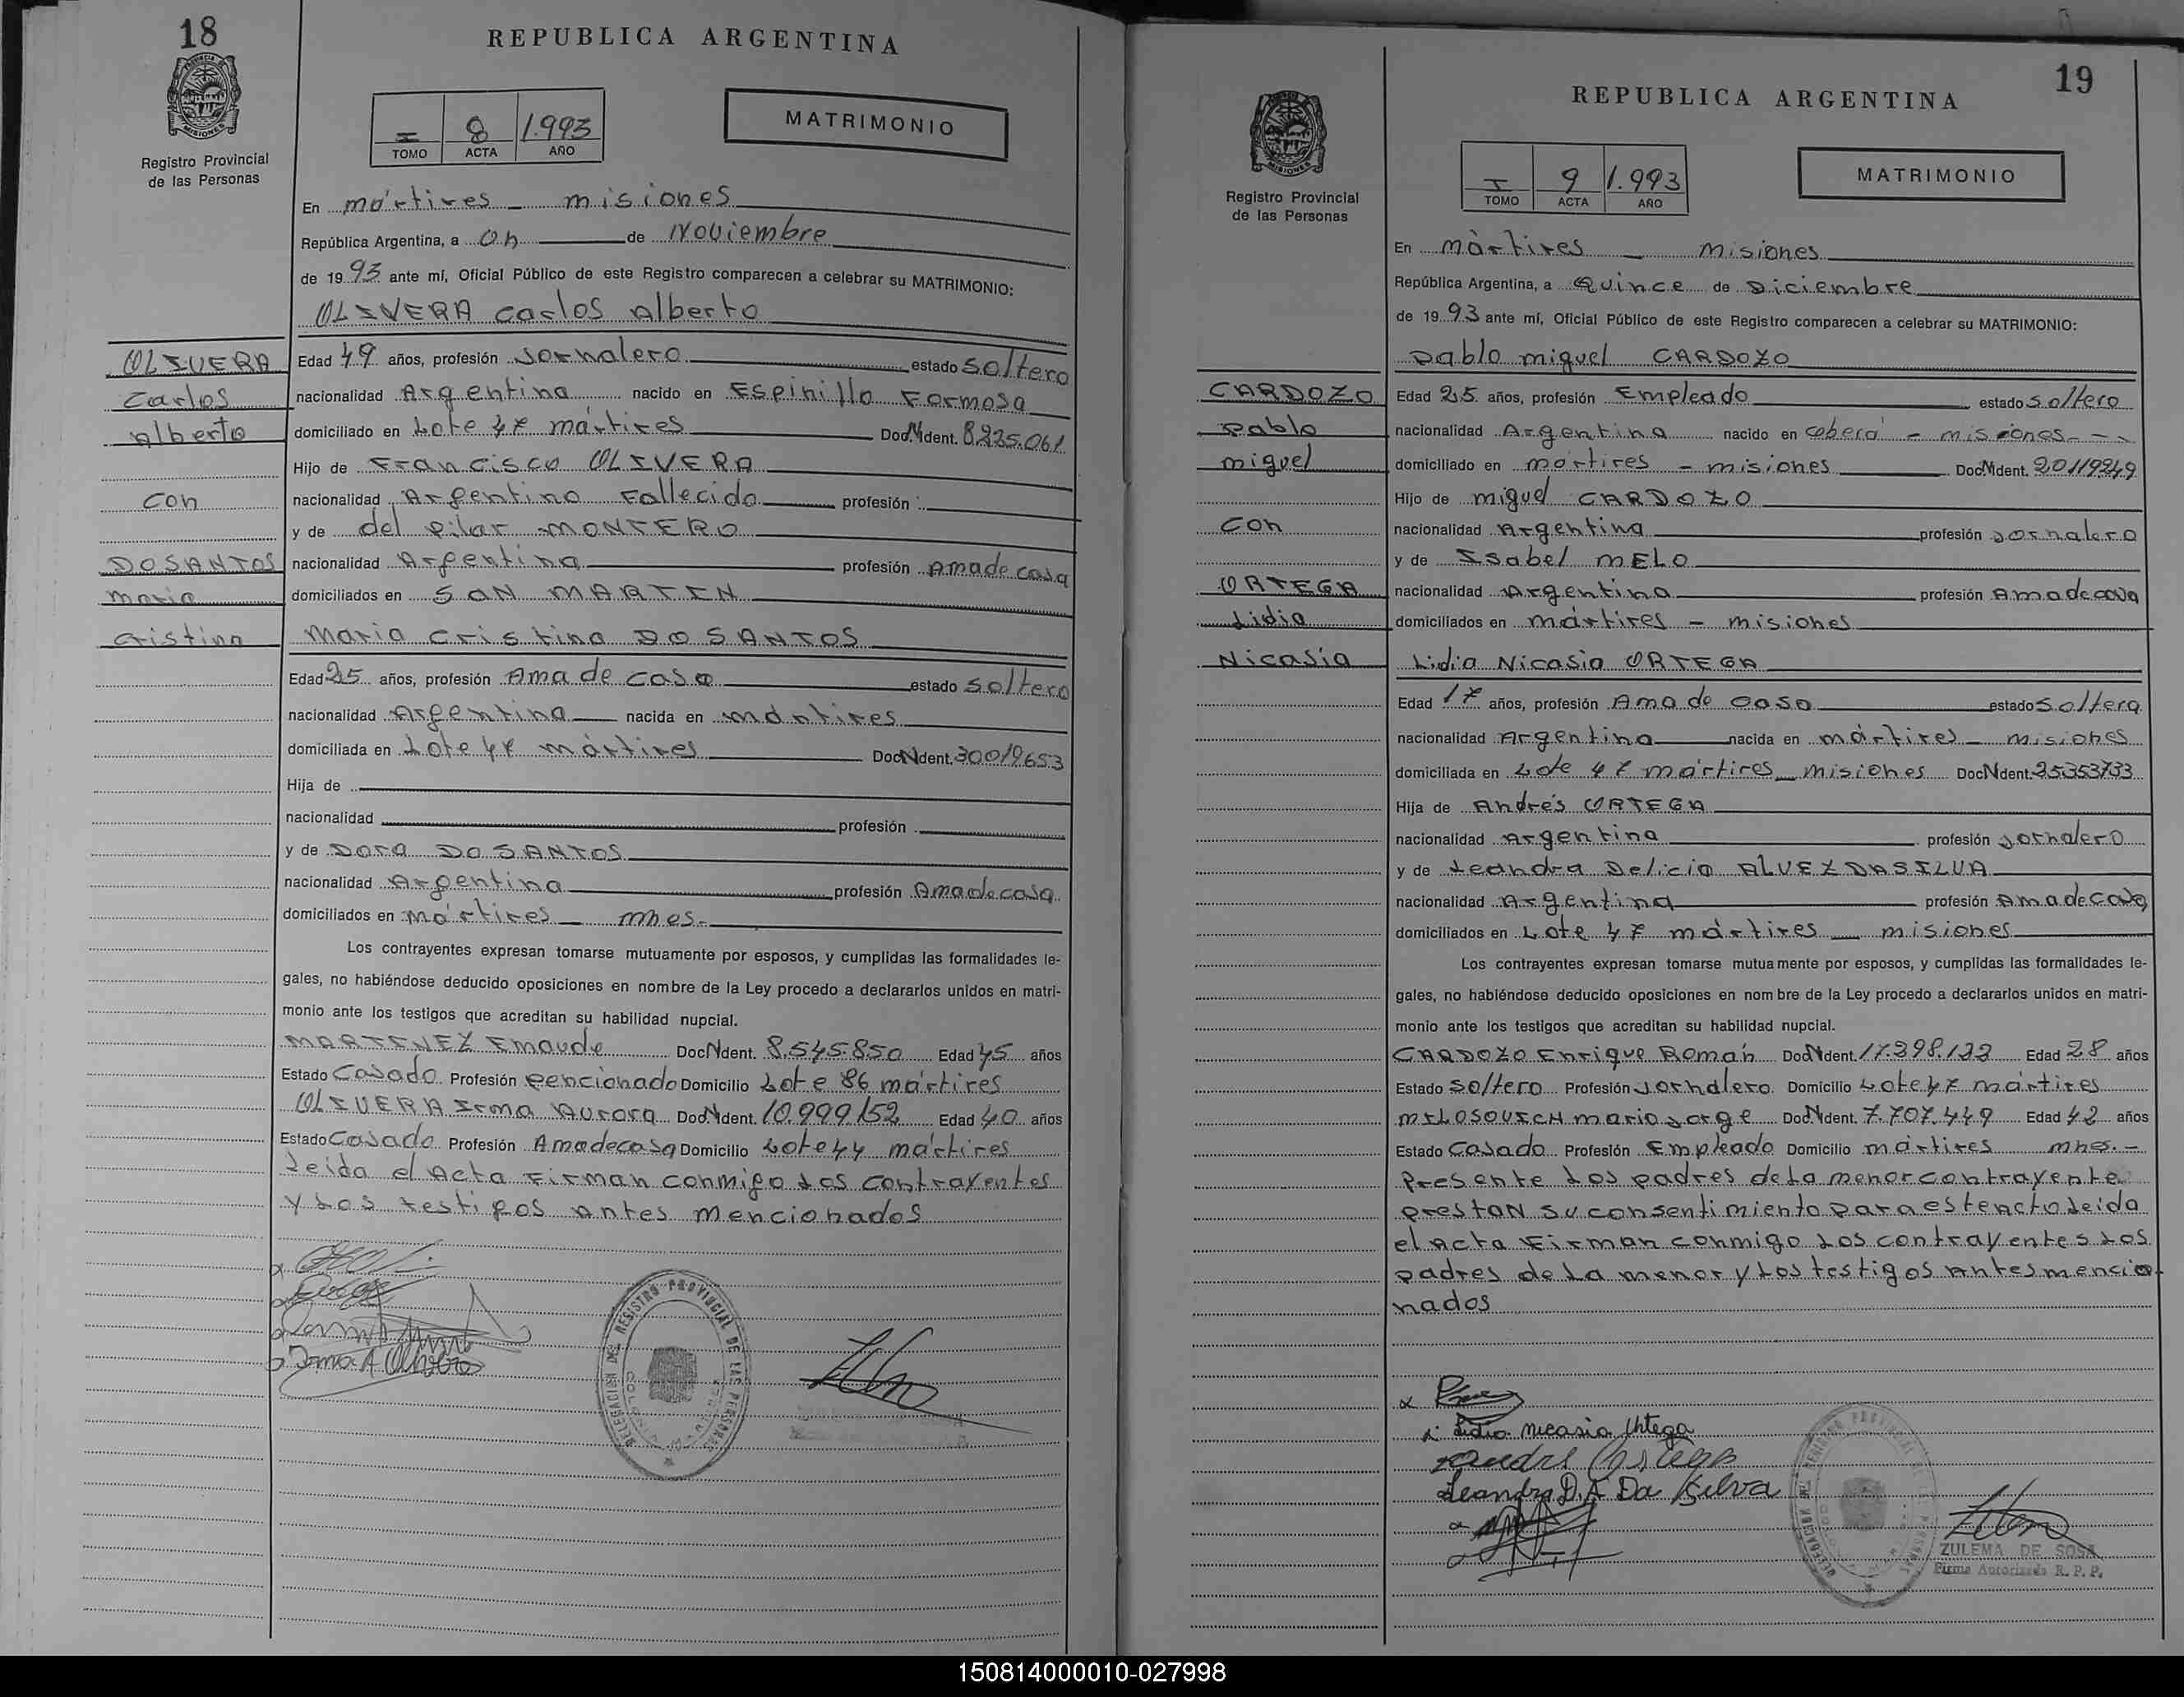 18
REPUBLICA ARGENTINA
Registro Provincial
de las Personas
I 8 1.993
TOMO ACTA AÑO
MATRIMONIO
En mártires - misiones
República Argentina, a On de Noviembre
de 1993 ante mí, Oficial Público de este Registro comparecen a celebrar su MATRIMONIO:
OLIVERA Carlos Alberto
OLIVERA
Carlos
Alberto
con
DOSANTOS
Maria
cristina
Edad 49 años, profesión Jornalero estado soltero
nacionalidad Argentina nacido en Espinillo Formosa
domiciliado en Lote 47 mártires Doc. Ident. 8.225.061
Hijo de Francisco OLIVERA
nacionalidad Argentino Fallecido profesión
y de del pilar MONTERO
nacionalidad Argentina profesión Ama de casa
domiciliados en SAN MARTIN
Maria Cristina DOSANTOS
Edad 25 años, profesión Ama de casa estado soltero
nacionalidad Argentina nacida en mártires
domiciliada en Lote 47 mártires Doc. Ident. 30019653
Hija de
nacionalidad profesión
y de DORA DOSANTOS
nacionalidad Argentina profesión Ama de casa
domiciliados en mártires mnes.-
Los contrayentes expresan tomarse mutuamente por esposos, y cumplidas las formalidades le-
gales, no habiéndose deducido oposiciones en nombre de la Ley procedo a declararlos unidos en matri-
monio ante los testigos que acreditan su habilidad nupcial.
MARTINEZ Doc Ident. 8.545.850 Edad 45 años
Estado Casado Profesión pencionado Domicilio Lote 86 mártires
OLIVERA Irma Aurora Doc. Ident. 10.999.152 Edad 40 años
Estado Casado Profesión Ama de casa Domicilio Lote 44 mártires
Leida el Acta Firman conmigo Los contrayentes
y Los testigos antes mencionados
Irma A Olivera
DELEGACION DEL REGISTRO PROVINCIAL DE LAS PERSONAS
19
REPUBLICA ARGENTINA
Registro Provincial
de las Personas
I 9 1.993
TOMO ACTA AÑO
MATRIMONIO
En mártires - misiones
República Argentina, a Quince de Diciembre
de 1993 ante mí, Oficial Público de este Registro comparecen a celebrar su MATRIMONIO:
Pablo miguel CARDOZO
CARDOZO
Pablo
miguel
con
ORTEGA
Lidia
Nicasia
Edad 25 años, profesión Empleado estado soltero
nacionalidad Argentina nacido en oberá - misiones
domiciliado en mártires - misiones Doc. Ident. 20119249
Hijo de miguel CARDOZO
nacionalidad Argentina profesión Jornalero
y de Isabel MELO
nacionalidad Argentina profesión Ama de casa
domiciliados en mártires - misiones
Lidia Nicasia ORTEGA
Edad 17 años, profesión Ama de casa estado soltera
nacionalidad Argentina nacida en mártires - misiones
domiciliada en Lote 47 mártires - misiones Doc Ident. 25353733
Hija de Andrés ORTEGA
nacionalidad Argentina profesión Jornalero
y de Leandra Delicia ALVEZ DASILVA
nacionalidad Argentina profesión Ama de casa
domiciliados en Lote 47 mártires - misiones
Los contrayentes expresan tomarse mutuamente por esposos, y cumplidas las formalidades le-
gales, no habiéndose deducido oposiciones en nombre de la Ley procedo a declararlos unidos en matri-
monio ante los testigos que acreditan su habilidad nupcial.
CARDOZO Enrique Román Doc Ident. 17.298.122 Edad 28 años
Estado soltero Profesión Jornalero Domicilio Lote 47 mártires
MILOSOVICH mario Jorge Doc. Ident. 7.707.449 Edad 42 años
Estado Casado Profesión Empleado Domicilio mártires mnes.-
Presente Los padres de La menor contrayente
prestan su consentimiento para este acto Leida
el Acta Firman conmigo Los contrayentes Los
padres de La menor y Los testigos antes mencio-
nados
Lidia nicasia Ortega
Andrés Ortega
Leandra D. A Da Silva
ZULEMA DE SOSA
Firma Autorizada R. P. P.
150814000010-027998